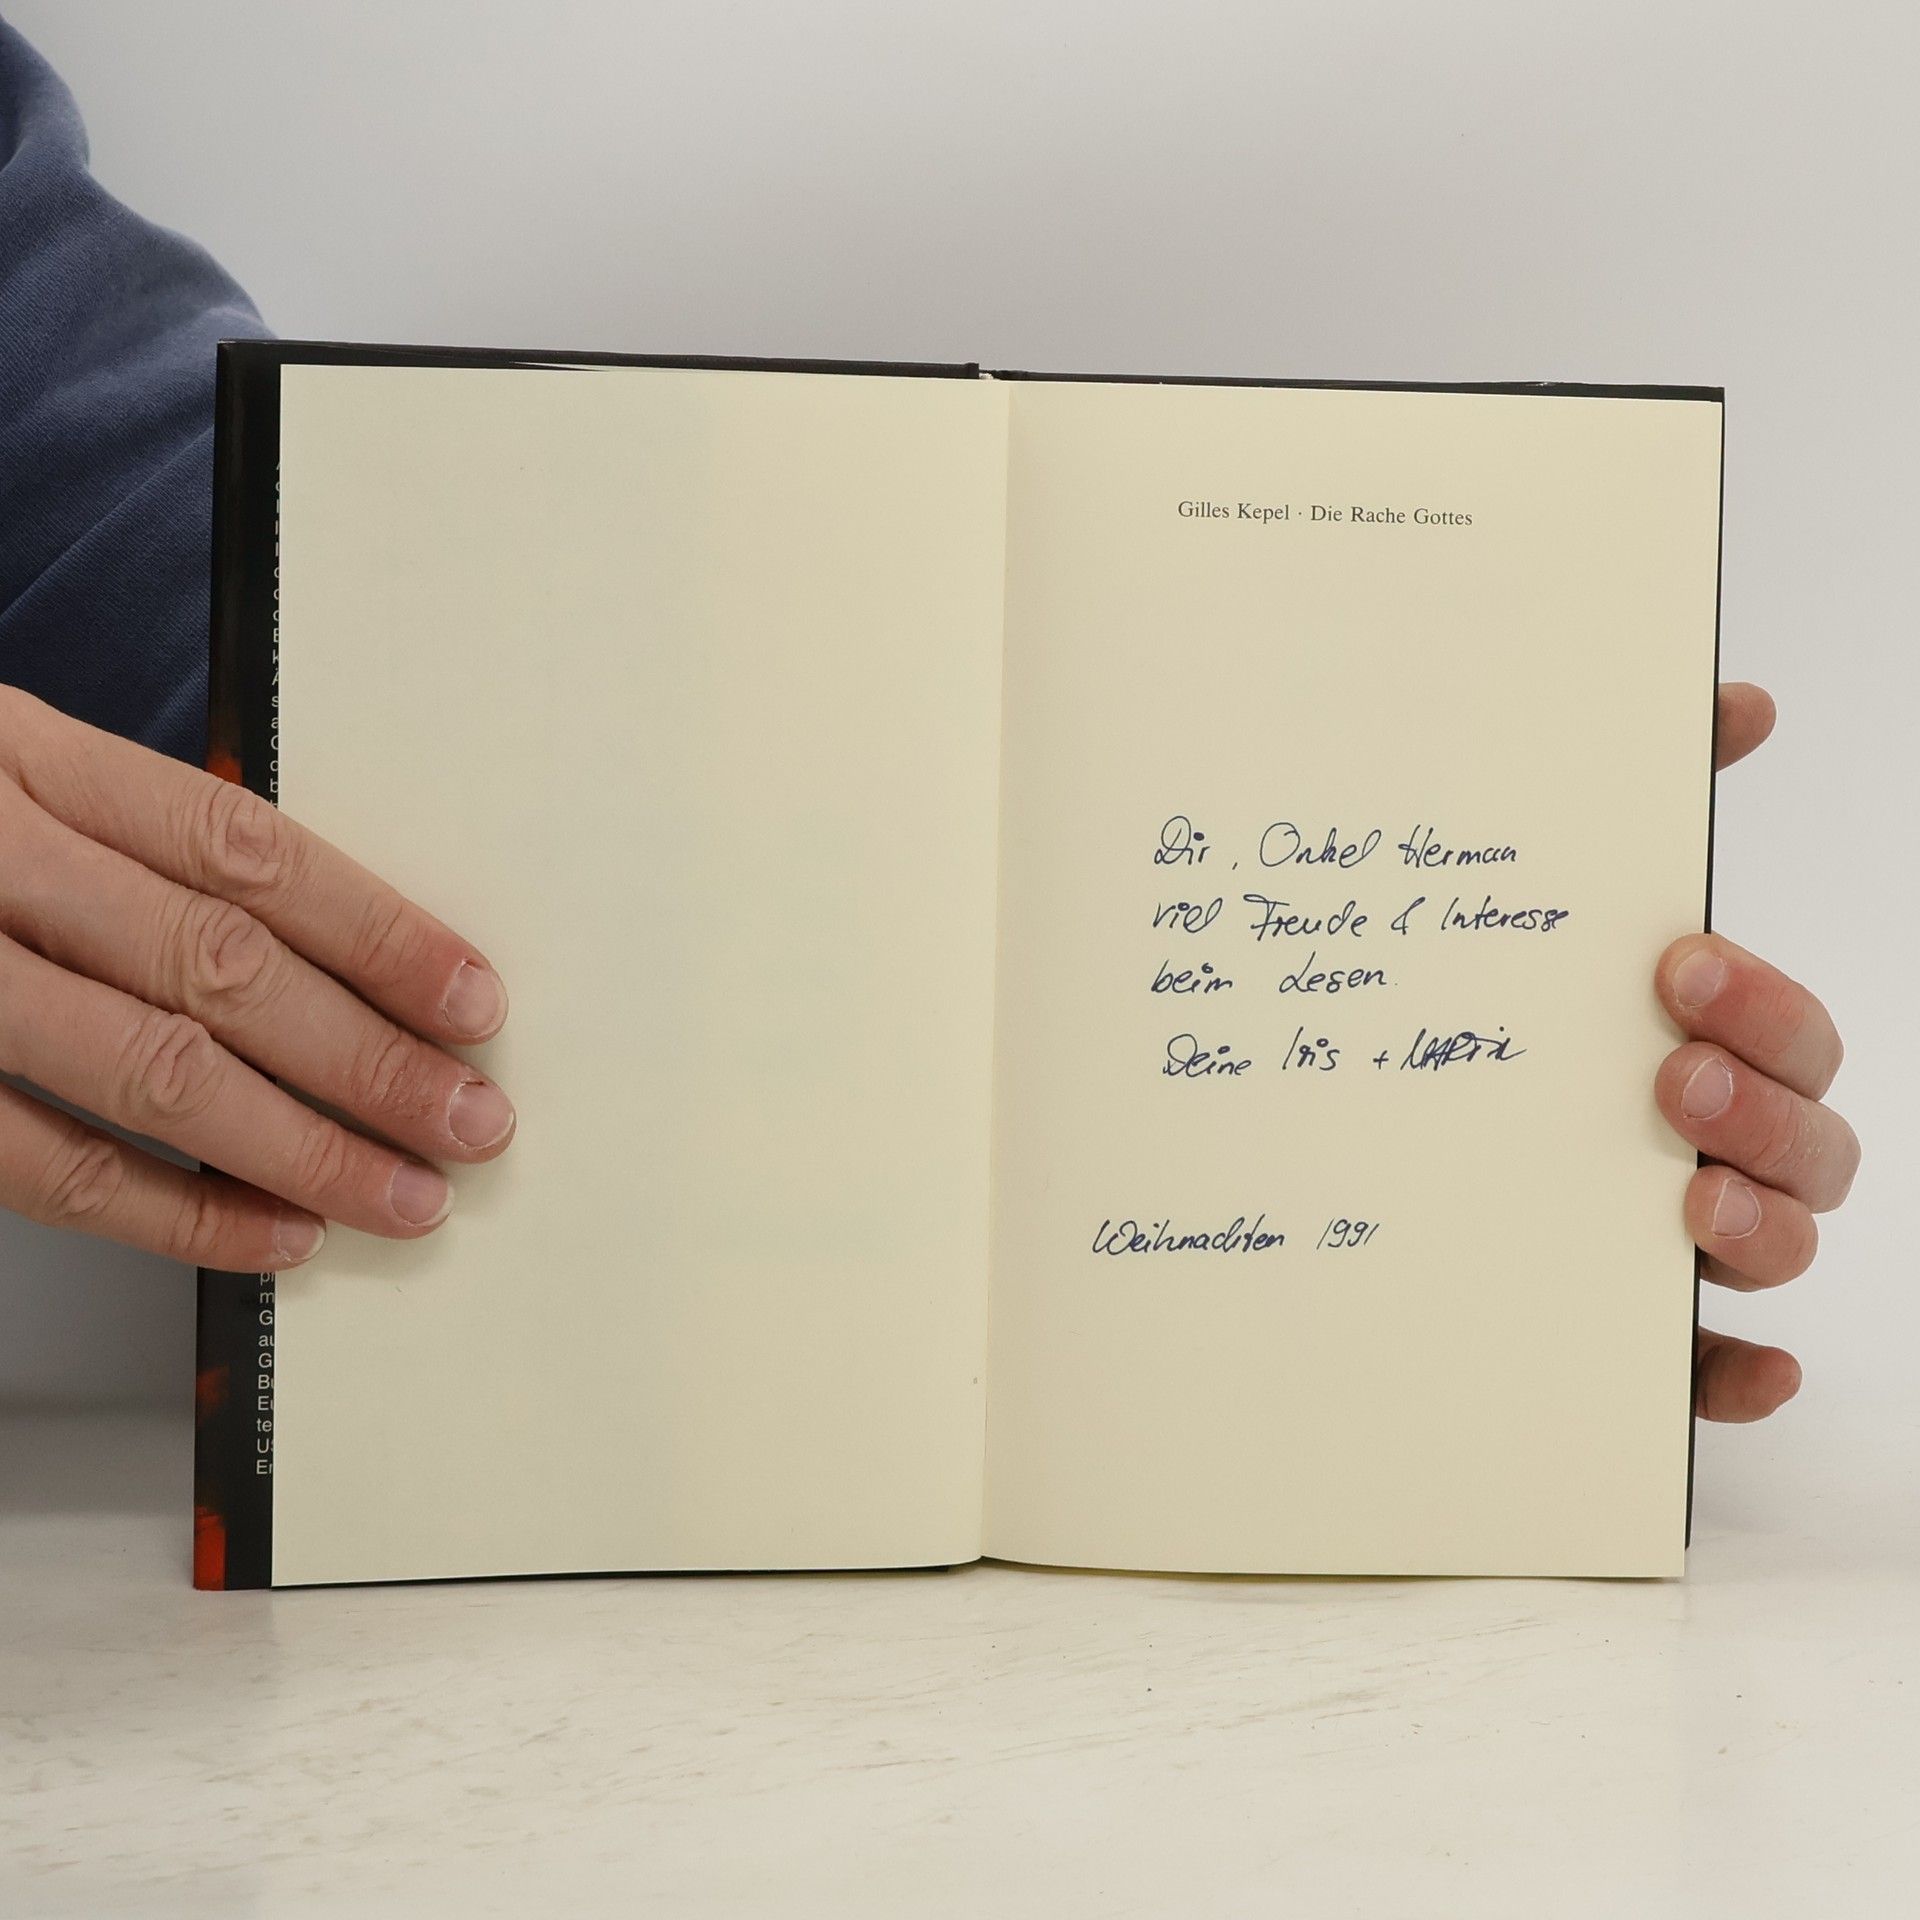 Gilles Kepel · Die Rache Gottes
Dir, Onkel Herman
viel Freude & Interesse
beim Lesen.
Deine Iris + MARTIN
Weihnachten 1991
m
G
au
G
Eu
te
US